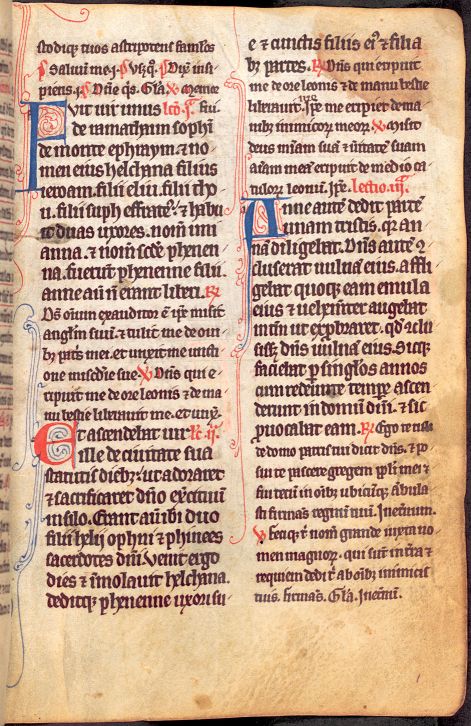 stodiqz tuos astripotens famlos
Salvum me.
piens.
Fuit vir unus lco. i. fui.
de ramathaim sophi
de monte ephraym. ⁊ no
men eius helchana filius
ieroam. filii eliu. filii tho
u. filii suph effrate⁹. ⁊ habu
it duas uxores. nom uni
anna. ⁊ nom scde phenen
na. fueruntqz phenenne filii.
anne au n erant liberi. R
Ds oium exauditor e ipe misit
anglm suum. ⁊ tulit me de oui
by patris mei. et unxit me uncti
one miscdie sue. V Dns qui e
ripuit me de ore leonis ⁊ de ma
nu bestie liberauit me. et unx
Et ascendebat uir lc. ii.
ille de ciuitate sua
statutis dieb; ut adoraret
⁊ sacrificaret dno exercituum
in silo. Erant au ibi duo
filii hely ophni ⁊ phinees
sacerdotes dni. Venit ergo
dies ⁊ imolauit helchana.
deditqz phenenne uxori su
e ⁊ cunctis filiis ei⁹ ⁊ filia
by partes. R Dns qui eripuit
me de ore leonis ⁊ de manu bestie
liberauit. Ipe me eripiet de ma
nib; inimicor meor. V Misit
deus miam sua ⁊ ueritate suam
aiam mea eripuit de medio ca
tulor leonu. Ipe. Lectio. iii.
Anne aute dedit parte
unam tristis. qz an
na diligebat. Dns autem
clauserat uulua eius. Affli
gebat quoqz eam emula
eius ⁊ uehementer angebat
intm ut exprobraret. qd 9clu
sisset dns uulua eius. Sicqz
faciebat p singlos annos
cum redeunte tempre ascen
derunt in domu dni. ⁊ sic
puocabat eam. R Ego te tuli
de domo patris tui dicit dns. ⁊ po
sui te pascere gregem ppli mei ⁊
fui tecu in oib; ubicuqz ābula
sti firmas regnu tuu. In eternum.
V Feciqz t nom grande iuxta no
men magnor. qui sunt in tra ⁊
requiem dedi t ab oib; inimicis
tuis. firmas. Gla. In eternu.